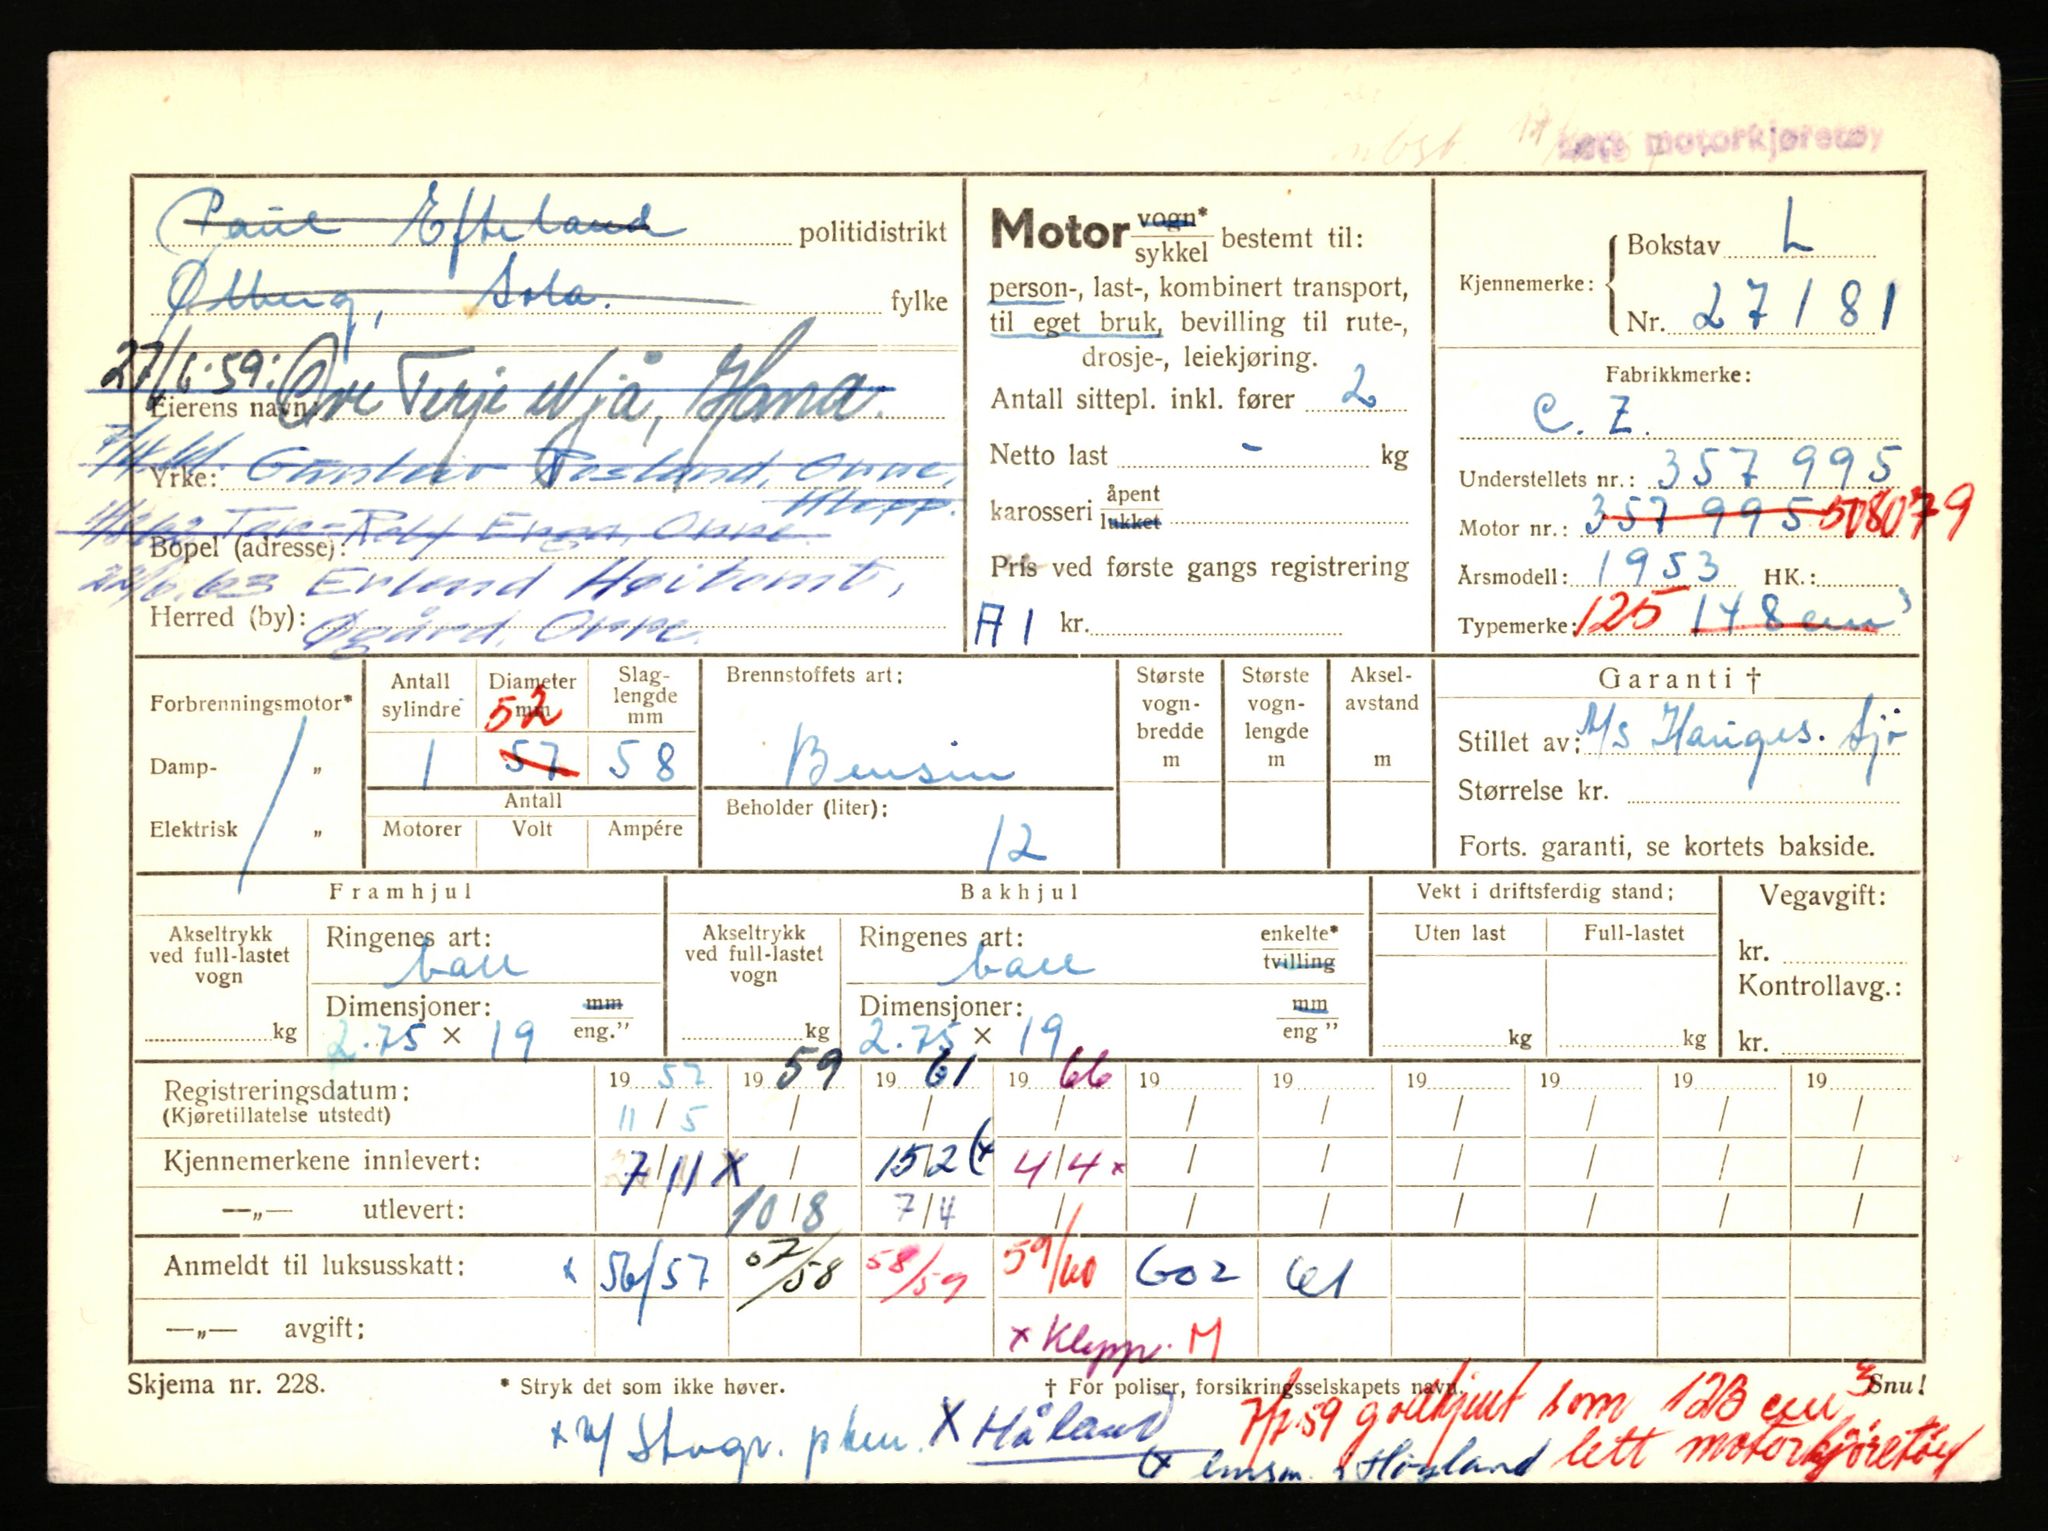 lett motorkjøretøy
Paul Efteland politidistrikt
Ølberg, Sola. fylke
27/6.59: Ove Terje Njå, Hana.
Eierens navn:
7/4.61
Yrke: Gunleiv Rosland, Orre,
Klepp.
Tor-Rolf Enga, Orre.
Bopel (adresse):
22/6.63 Erlend Høitomt,
Herred (by): Øgård, Orre.
Motor vogn*
sykkel bestemt til:
person-, last-, kombinert transport,
til eget bruk, bevilling til rute-,
drosje-, leiekjøring.
Antall sittepl. inkl. fører 2
Netto last - kg
karosseri åpent
lukket
Pris ved første gangs registrering
A 1 kr.
Kjennemerke: Bokstav L
Nr. 27181
Fabrikkmerke:
C. Z.
Understellets nr.: 357 995
Motor nr.: 357 995 508079
Årsmodell: 1953 HK.:
Typemerke: 125 148 cm³
Forbrenningsmotor*
Damp- „
Elektrisk „
Antall sylindre
1
Diameter mm
52
57
Slag-
lengde
mm
58
Antall
Motorer Volt Ampére
Brennstoffets art:
Bensin
Beholder (liter):
12
Største
vogn-
bredde
m
Største
vogn-
lengde
m
Aksel-
avstand
m
Garanti †
Stillet av: A/S Hauges. Sjø
Størrelse kr.
Forts. garanti, se kortets bakside.
Framhjul
Akseltrykk
ved full-lastet
vogn
kg
Ringenes art:
ball
Dimensjoner: mm
2.75 × 19 eng.”
Bakhjul
Akseltrykk
ved full-lastet
vogn
kg
Ringenes art: enkelte*
ball tvilling
Dimensjoner: mm
2.75 × 19 eng ”
Vekt i driftsferdig stand:
Uten last Full-lastet
kg kg
Vegavgift:
kr.
Kontrollavg.:
kr.
Registreringsdatum: 19 57 19 59 19 61 19 66 19 19 19 19 19 19
(Kjøretillatelse utstedt) 11/5 / / / / / / / / /
Kjennemerkene innlevert: 7/11 x / 15/2 (x 4/4 x / / / / / /
—„— utlevert: / 10/8 7/4 / / / / / / /
Anmeldt til luksusskatt: x 56/57 57/58 58/59 59/60 602 61
—„— avgift: x Klepp. M
Skjema nr. 228. * Stryk det som ikke høver. † For poliser, forsikringsselskapets navn. Snu!
7/8.59 godkjent som 123 cm³
x v/ Stvgr. pkm. X Håland
(x lmsm. i Hoyland lett motorkjøretøy